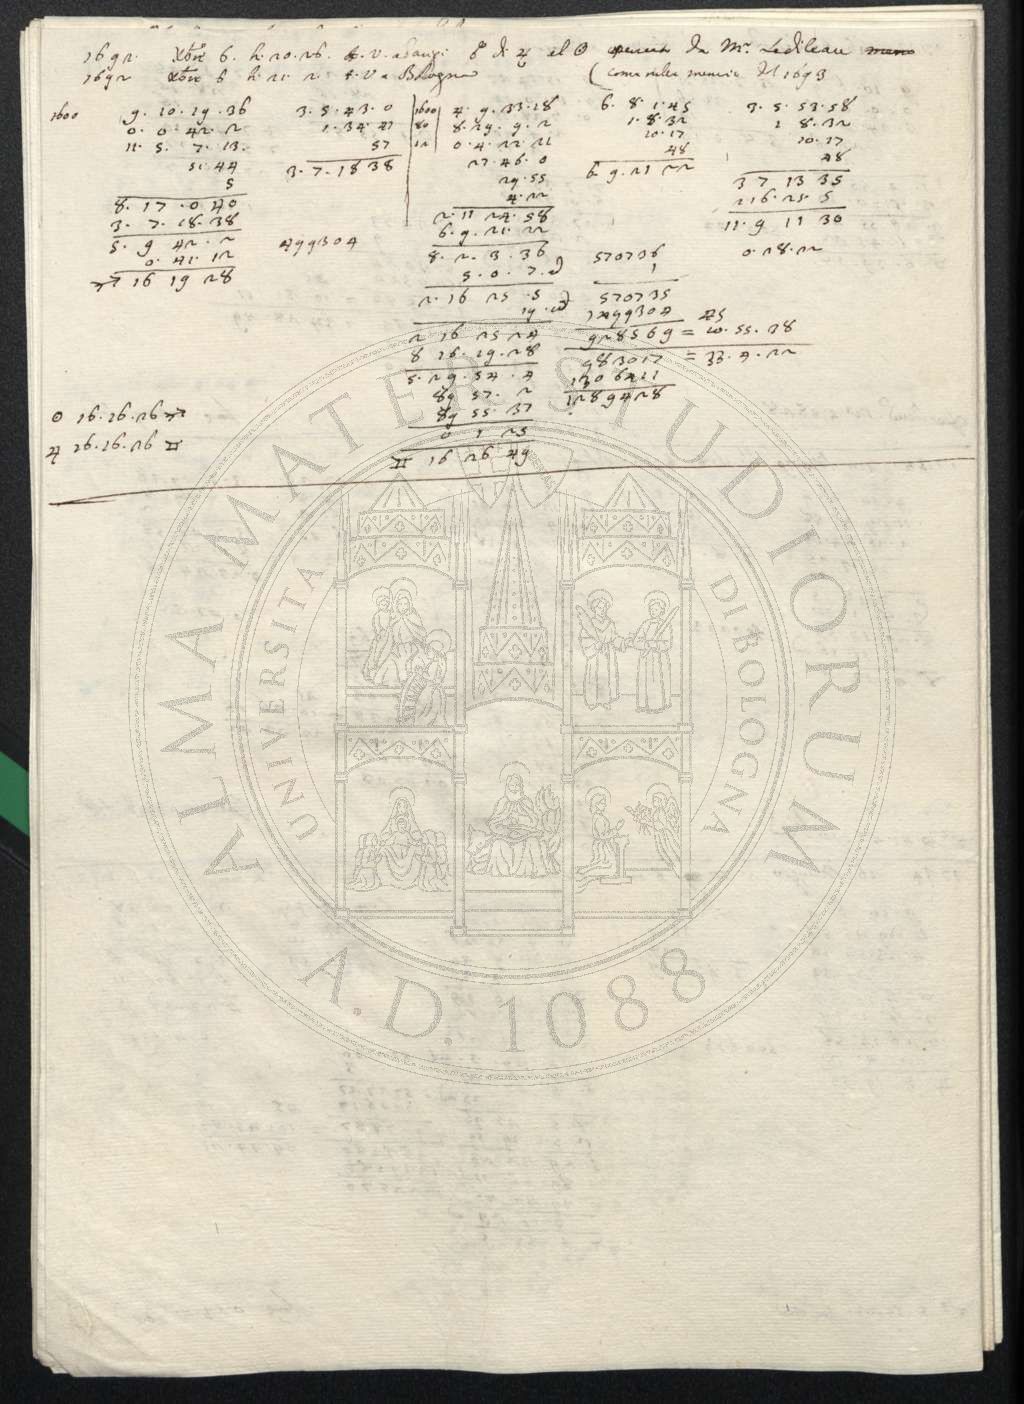 1692. Xbre 6. h. 20.26. t. v. a Parigi 8 di ♃ al ☉ da Mr. Ledileau
1692 Xbre 6 h. 21. 2. t. v a Bologna (come nelle memorie del 1693
1600 9. 10. 19. 36
0. 0. 42. 2
11. 5. 7. 13.
51. 44
5
8. 17. 0. 40
3. 7. 18. 38
5. 9 42. 2
0. 41. 12
♐ 16 19 28
3. 5. 43. 0
1. 34. 41
57
3. 7. 18 38
499304
☉ 16. 26. 26 ♐
♃ 26. 26. 26 ♊
1600 4. 9. 33. 18
80 8. 29. 9. 2
12 0. 4. 22. 21
27. 46. 0
29. 55
4. 22
2. 11 24. 58
6. 9. 21. 22
8. 2. 3. 36
5. 0. 7.
2. 16 25. 5
19.
2 16 25 24
8 16. 19. 28
5. 29. 54. 4
89 57. 2
89 55. 37
0 1 25
♊ 16 26 49
6. 8. 1. 45
1. 8. 32
10. 17
48
6 9. 21 22
570736
1
570735
1499304
928569 = 10. 55. 38
45
983017 = 33. 4. 22
1306411
1289428
3. 5. 53. 58
1 8. 32
10. 17
48
3 7 13 35
2 16. 25. 5
11. 9 11 30
0. 28. 22
ALMA MATER STUDIORUM
UNIVERSITA DI BOLOGNA
A.D. 1088